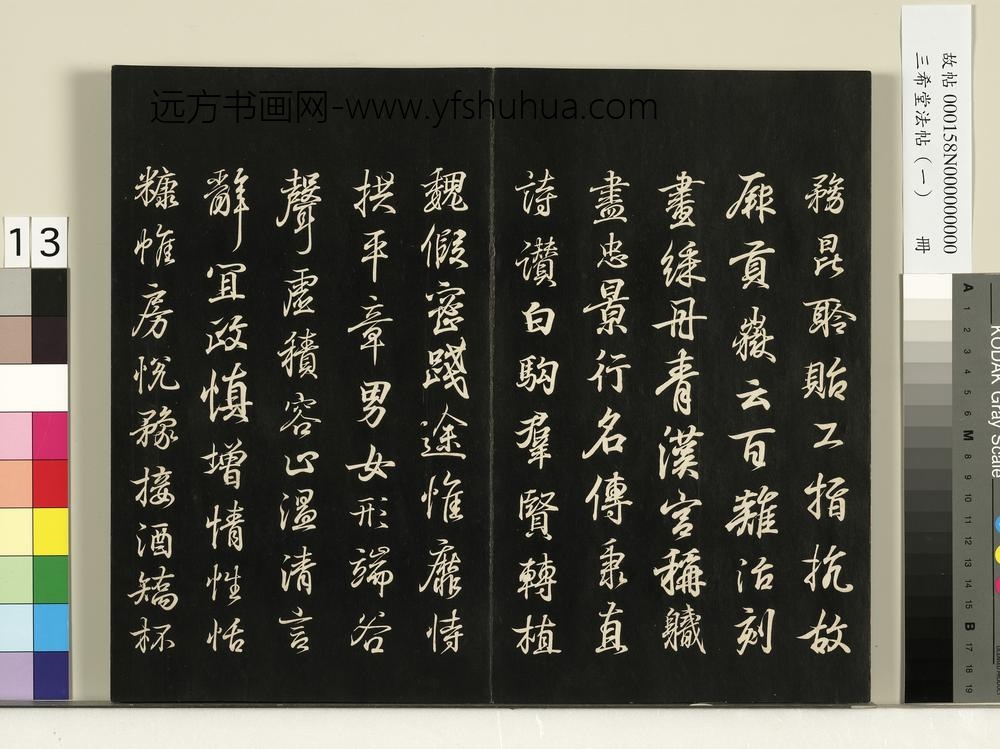 远方书画网-www.yfshuhua.com
故帖 000158N000000000
三希堂法帖（一） 冊
務昆聆貽工指抗故
厥貢嶽云百活刻
畫綵丹青漢宮稱軄
盡忠景行名傳秉直
詩讚白駒羣賢轉植
魏假密踐途惟靡恃
拱平章男女形端谷
聲虛積容止溫清言
辭宜政慎增情性恬
糠帷房悅豫接酒矯杯
13
KODAK Gray Scale
A 1 2 3 4 5 6 M 8 9 10 11 12 13 14 15 B 17 18 19